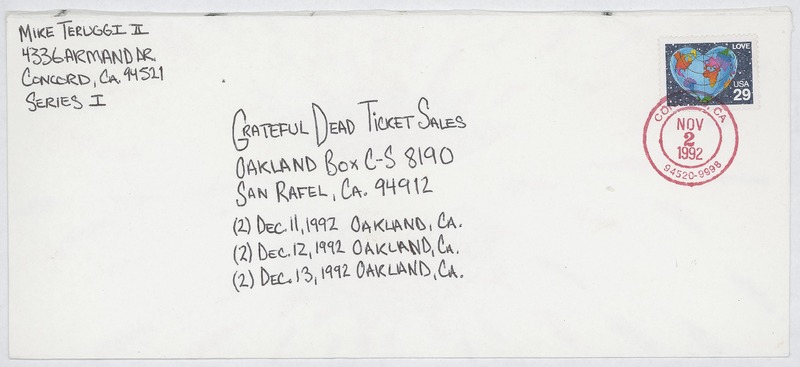 MIKE TERUGGI II
4336 ARMAND DR.
CONCORD, CA. 94521
SERIES I
LOVE
USA
29
CONCORD, CA
NOV
2
1992
94520-9998
GRATEFUL DEAD TICKET SALES
OAKLAND BOX C-S 8190
SAN RAFEL, CA. 94912
(2) DEC. 11, 1992 OAKLAND, CA.
(2) DEC. 12, 1992 OAKLAND, CA.
(2) DEC. 13, 1992 OAKLAND, CA.